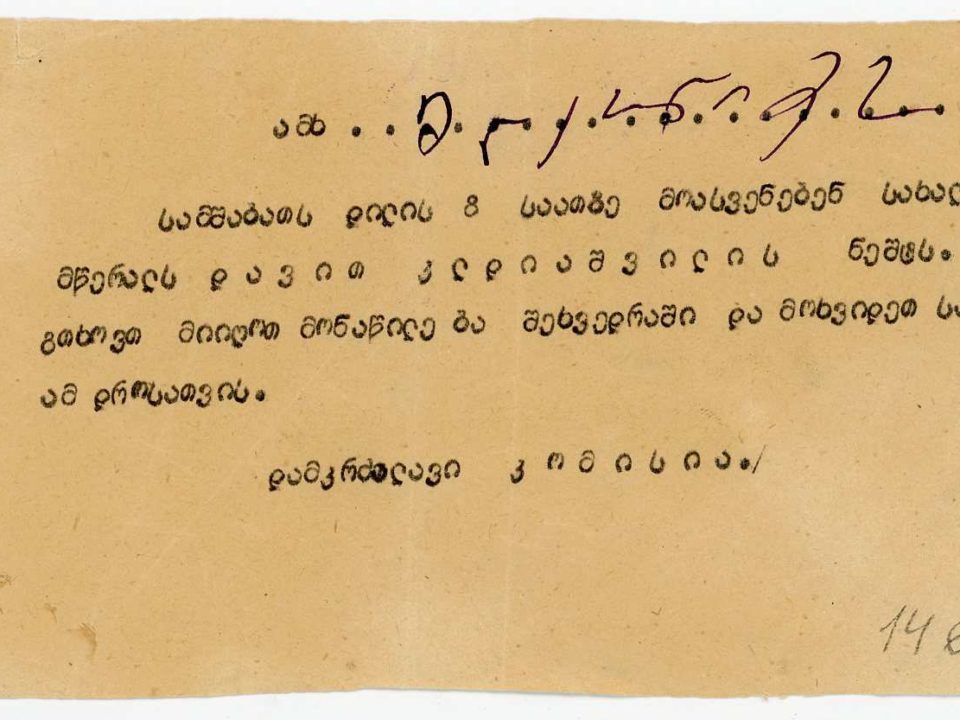 ამხ . . . . . . . . . . . . . . .
სამშაბათს დილის 8 საათზე მოასვენებენ სახალ
მწერალს დ ა ვ ი თ კ ლ დ ი ა შ ვ ი ლ ი ს ნეშტს.
გთხოვთ მიიღოთ მონაწილე ბა შეხვედრაში და მოხვიდეთ სა
ამ დროსათვის.
დამკრძალავი კ ო მ ი ს ი ა./
14